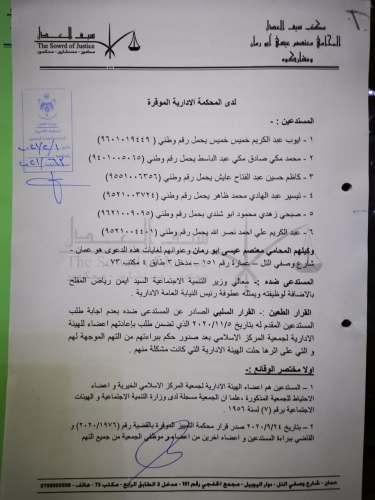 مكتب سيف العدل
المحامي معتصم عيسى أبو رمان
ومشاركوه
سيف العدل
The Sowrd of Justice
محامون - مستشارون - محكمون
لدى المحكمة الادارية الموقرة
المستدعين :-
١ - ايوب عبد الكريم خميس خميس يحمل رقم وطني (٩٦٠١٠١٩٤٤٩)
٢ - محمد مكي صادق مكي عبد الباسط يحمل رقم وطني (٩٤٠١٠٠٥٠٦٥)
٣ - كاظم حسين عبد الفتاح عايش يحمل رقم وطني (٩٥٥١٠٠٦٣٥٦)
٤ - تيسير عبد الهادي محمد ظاهر يحمل رقم وطني (٩٥٢١٠٠٣٧٢٤)
٥ - صبحي زهدي محمود ابو شندي يحمل رقم وطني (٩٦٢١٠٠٩٠٩٥)
٦ - عبد الكريم علي احمد نصر الله يحمل رقم وطني (٩٥٢١٠٠٤٤٠١)
وكيلهم المحامي معتصم عيسى ابو رمان وعنوانهم لغايات هذه الدعوى هو عمان -
شارع وصفي التل - عمارة رقم ١٥١ - مدخل ٣ طابق ٤ مكتب ٧٣
المستدعى ضده :- معالي وزير التنمية الاجتماعية السيد ايمن رياض المفلح
بالاضافة لوظيفته ويمثله عطوفة رئيس النيابة العامة الادارية .
القرار الطعين :- القرار السلبي الصادر عن المستدعى ضده بعدم اجابة طلب
المستدعين المقدم له بتاريخ ٢٠٢٠/١١/٥ الذي تضمن طلب بإعادتهم اعضاء للهيئة
الادارية لجمعية المركز الاسلامي بعد صدور حكم ببراءتهم من التهم الموجهة لهم
و التي على اثرها حلت الهيئة الادارية التي كانت مشكلة منهم .
اولا مختصر الوقائع :-
١ - المستدعين هم اعضاء الهيئة الادارية لجمعية المركز الاسلامي الخيرية و اعضاء
الاحتياط للجمعية المذكورة ،علما ان الجمعية مسجلة لدى وزارة التنمية الاجتماعية و الهيئات
الاجتماعية برقم (٧) لسنة ١٩٥٦ .
٢ - بتاريخ ٢٠٢٠/٩/٢٤ صدر قرار محكمة التمييز الموقرة بالقضية رقم (٢٠٢٠/١٩٧٦)
و القاضي ببراءة المستدعين و اعضاء اخرين من اعضاء و موظفي الجمعية من جميع التهم
عمان - شارع وصفي التل - دوار اليوبيل - مجمع الخفجي رقم 151 مدخل 3 الطابق الرابع - مكتب 73 - هاتف -